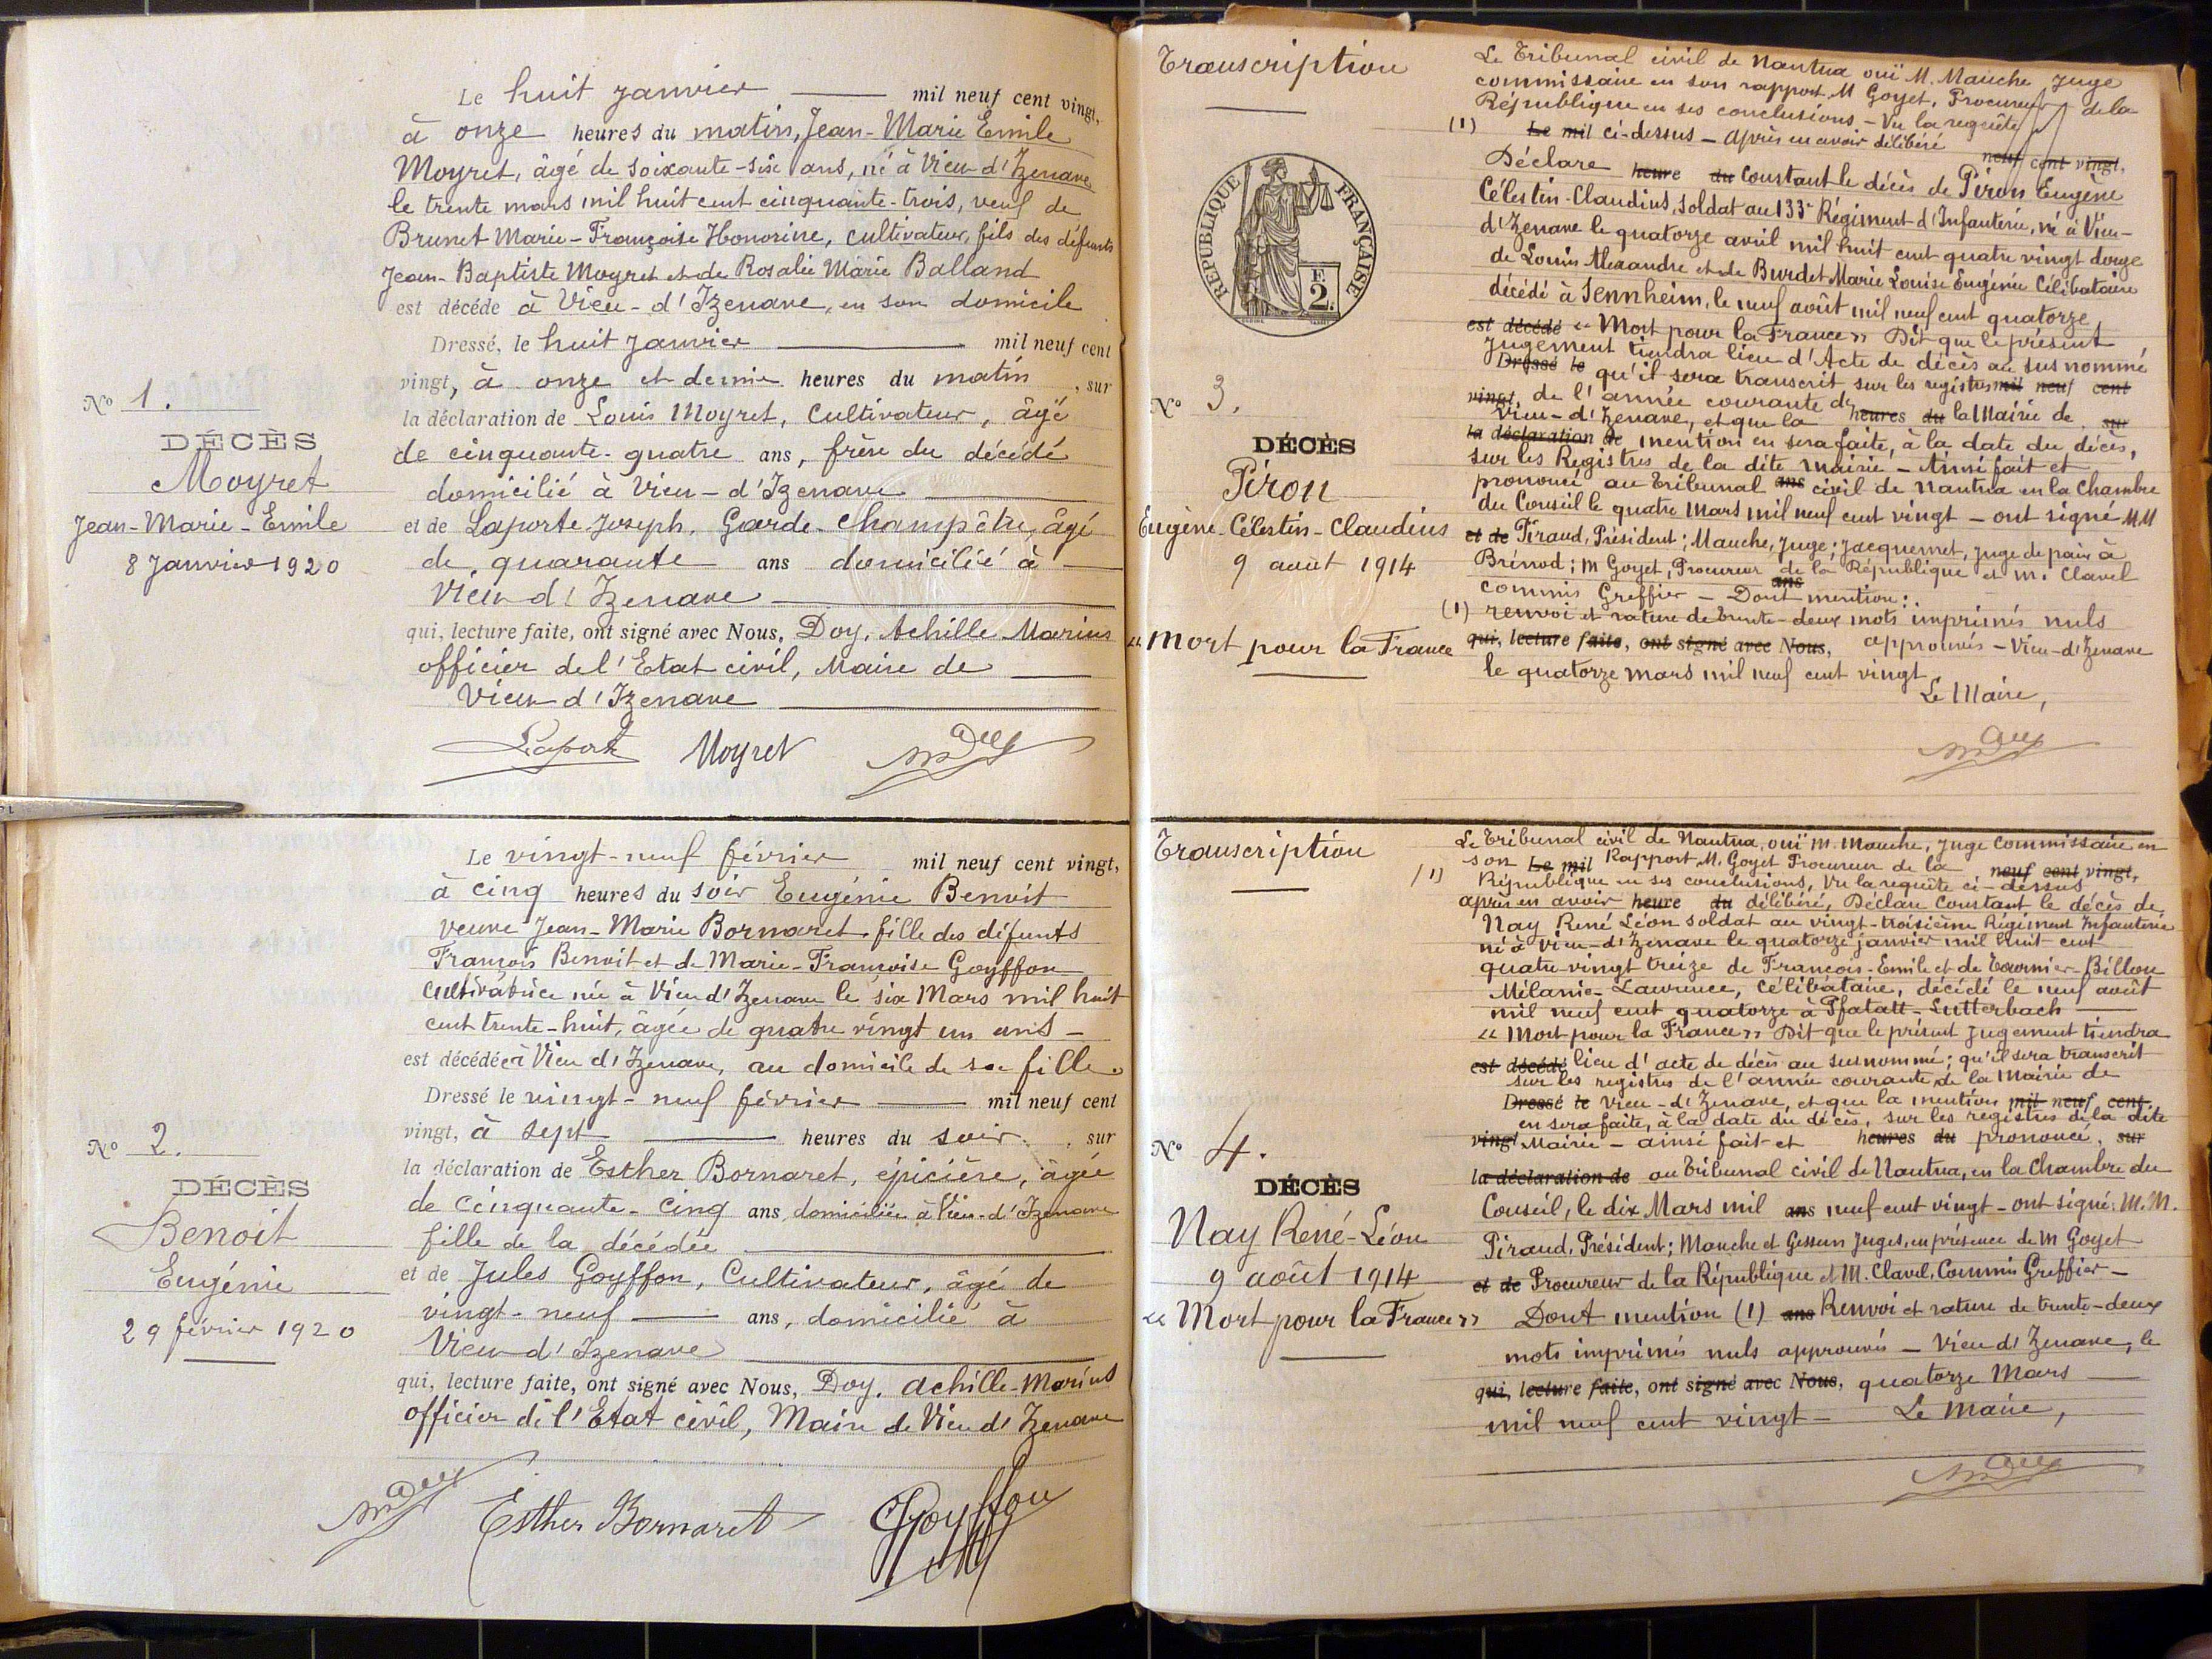 Le huit janvier mil neuf cent vingt,
à onze heures du matin, Jean-Marie Emile
Moyret, âgé de soixante-six ans, né à Vieu-d'Izenave
le trente mars mil huit cent cinquante-trois, veuf de
Brunet Marie-Françoise Honorine, cultivateur, fils des défunts
Jean-Baptiste Moyret et de Rosalie Marie Balland
est décédé à Vieu-d'Izenave, en son domicile
Dressé, le huit janvier mil neuf cent
vingt, à onze et demie heures du matin, sur
la déclaration de Louis Moyret, cultivateur, âgé
de cinquante-quatre ans, frère du décédé
domicilié à Vieu-d'Izenave
et de Laporte Joseph, Garde-Champêtre, âgé
de quarante ans domicilié à
Vieu d'Izenave
qui, lecture faite, ont signé avec Nous, Doy, Achille Marius
officier de l'Etat civil, Maire de
Vieu d'Izenave
Laporte Moyret
N° 1.
DÉCÈS
Moyret
Jean-Marie-Emile
8 Janvier 1920
Le vingt-neuf février mil neuf cent vingt,
à cinq heures du soir Eugénie Benoit
veuve Jean-Marie Bornaret, fille des défunts
François Benoit et de Marie-Françoise Goyffon
cultivatrice née à Vieu d'Izenave le six Mars mil huit
cent trente-huit, âgée de quatre vingt un ans -
est décédée à Vieu d'Izenave, au domicile de sa fille.
Dressé le vingt-neuf février mil neuf cent
vingt, à sept heures du soir, sur
la déclaration de Esther Bornaret, épicière, âgée
de cinquante-cinq ans, domiciliée à Vieu-d'Izenave
fille de la décédée
et de Jules Goyffon, Cultivateur, âgé de
vingt-neuf ans, domicilié à
Vieu d'Izenave
qui, lecture faite, ont signé avec Nous, Doy, Achille-Marius
officier de l'Etat civil, Maire de Vieu d'Izenave
Esther Bornaret Goyffon
N° 2.
DÉCÈS
Benoit
Eugénie
29 février 1920
Transcription
REPUBLIQUE FRANÇAISE
E
2.
N° 3.
DÉCÈS
Piron
Eugène-Célestin-Claudius
9 août 1914
"Mort pour la France
Le Tribunal civil de Nantua ouï M. Mauche Juge
commissaire en son rapport M Goyet, Procureur de la
République en ses conclusions - Vu la requête
(1) Le mil ci-dessus - Après en avoir délibéré neuf cent vingt,
Déclare heure du Constant le décès de Piron Eugène
Célestin-Claudius, soldat au 133e Régiment d'Infanterie, né à Vieu-
d'Izenave le quatorze avril mil huit cent quatre vingt douze
de Louis Alexandre et de Burdet Marie Louise Eugénie Célibataire
décédé à Sennheim, le neuf août mil neuf cent quatorze
est décédé "Mort pour la France" Dit que le présent
Jugement tiendra lieu d'Acte de décès au sus nommé
Dressé le qu'il sera transcrit sur les registres mil neuf cent
vingt, de l'année courante de
Vieu-d'Izenave, et que la heures du la Mairie de, sur
la déclaration de mention en sera faite, à la date du décès,
sur les Registres de la dite Mairie - Ainsi fait et
prononcé au Tribunal ans civil de Nantua en la Chambre
du Conseil le quatre Mars mil neuf cent vingt - ont signé MM
et de Piraud, Président; Mauche, Juge; Jacquemet, Juge de paix à
Brénod; M Goyet, Procureur de la République et M. Clavel
commis Greffier - Dont ans mention:
(1) renvoi et rature de trente-deux mots imprimés nuls
qui, lecture faite, ont signé avec Nous, approuvés - Vieu-d'Izenave
le quatorze mars mil neuf cent vingt
Le Maire,
Transcription
N° 4.
DÉCÈS
Nay René-Léon
9 août 1914
"Mort pour la France"
Le Tribunal civil de Nantua, ouï M. Mauche, Juge Commissaire en
son Le mil Rapport M. Goyet Procureur de la neuf cent vingt,
(1) République en ses conclusions, Vu la requête ci-dessus
après en avoir heure du délibéré, Déclare Constant le décès de
Nay René Léon soldat au vingt-troisième Régiment Infanterie
né à Vieu-d'Izenave le quatorze janvier mil huit cent
quatre-vingt treize de François-Emile et de Tournier-Billon
Mélanie-Laurence, célibataire, décédé le neuf août
mil neuf cent quatorze à Pfatatt-Lutterbach
"Mort pour la France" Dit que le présent Jugement tiendra
est décédé lieu d'acte de décès au susnommé; qu'il sera transcrit
sur les registres de l'année courante de la Mairie de
Dressé le Vieu-d'Izenave, et que la mention mil neuf cent
en sera faite, à la date du décès, sur les registres de la dite
vingt Mairie - ainsi fait et heures du prononcé, sur
la déclaration de au Tribunal civil de Nantua, en la Chambre du
Conseil, le dix Mars mil ans neuf cent vingt - ont signé: M.M.
Piraud, Président; Mauche et Juges, en présence de M Goyet
et de Procureur de la République et M. Clavel, Commis Greffier -
Dont mention (1) ans Renvoi et rature de trente-deux
mots imprimés nuls approuvés - Vieu d'Izenave, le
qui, lecture faite, ont signé avec Nous, quatorze Mars
mil neuf cent vingt - Le Maire,